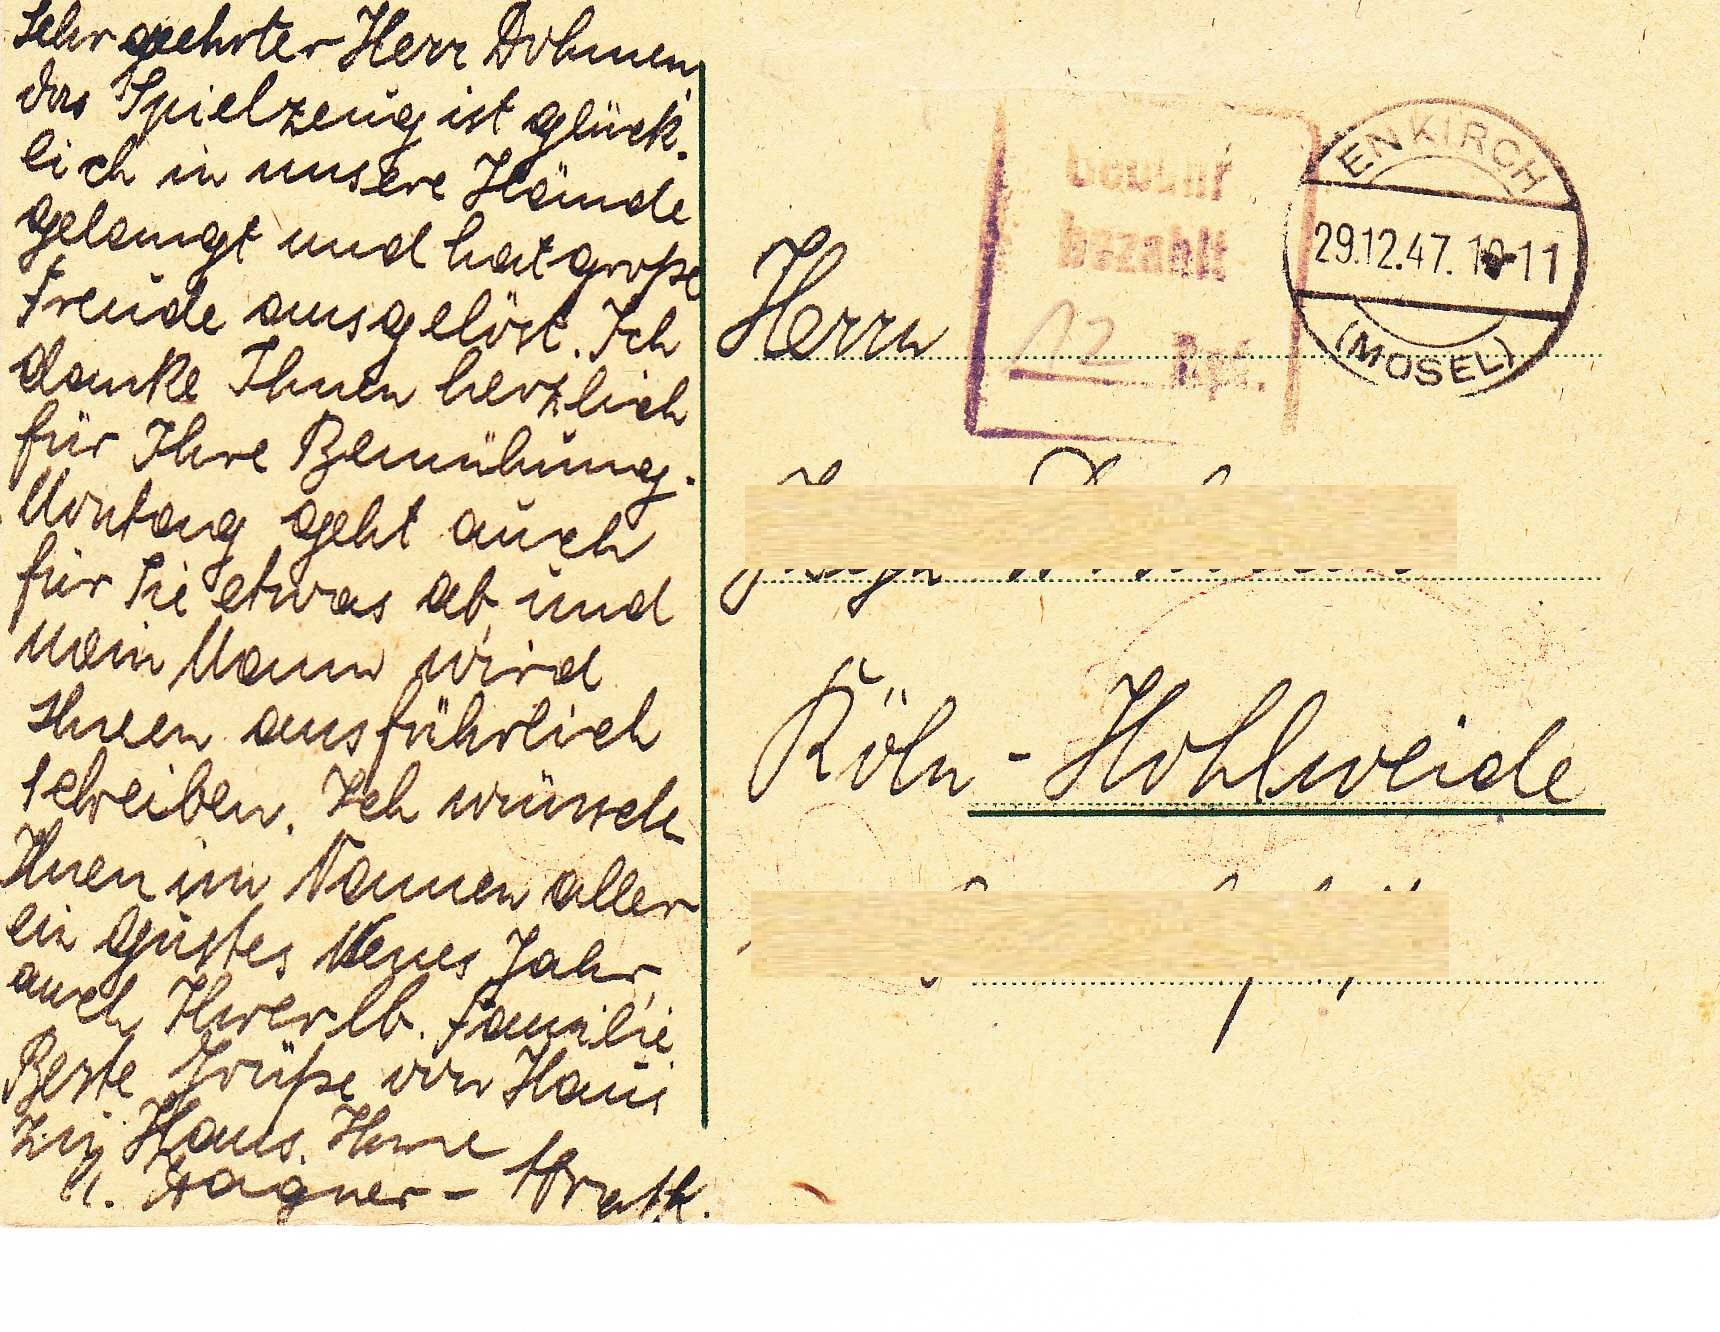 Sehr geehrter Herr Dohmen,
das Spielzeug ist glück-
lich in unsere Hände
gelangt und hat große
Freude ausgelöst. Ich
danke Ihnen herzlich
für Ihre Bemühung.
Montag geht auch
für Sie etwas ab und
mein Mann wird
Ihnen ausführlich
schreiben. Ich wünsche
Ihnen im Namen aller
ein gutes Neues Jahr,
auch Ihrer lb. Familie.
Beste Grüße von Haus
zu Haus. Ihre
Gebühr
bezahlt
12 Rpf.
ENKIRCH
29.12.47. 10-11
(MOSEL)
Herrn
Köln - Hohlweide